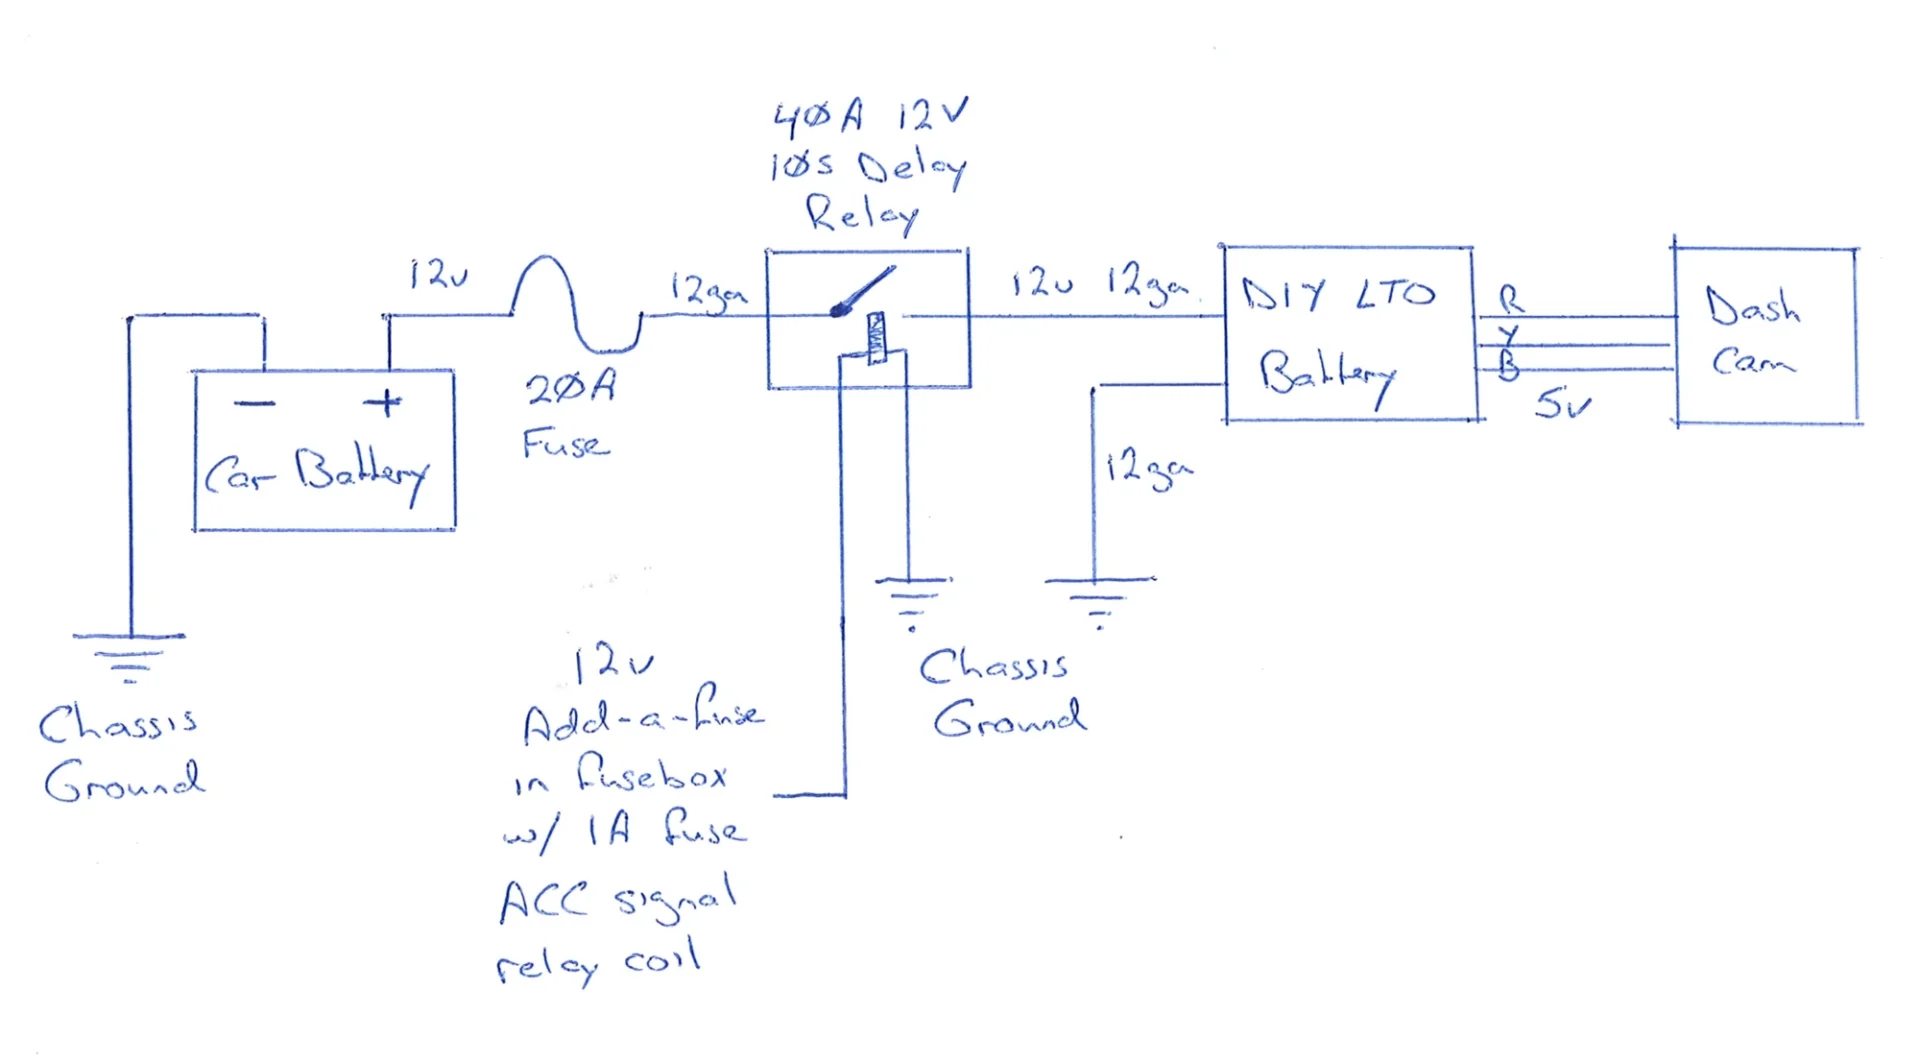 40A 12V
10s Delay
Relay
12v
12ga
12v 12ga
20A
Fuse
- +
Car Battery
DIY LTO
Battery
R
Y
B
5v
Dash
Cam
12ga
Chassis
Ground
12v
Add-a-fuse
in fusebox
w/ 1A fuse
ACC signal
relay coil
Chassis
Ground